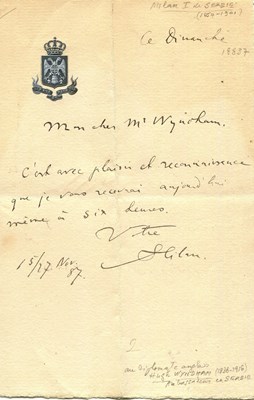 Milan I de SERBIE
(1854-1901)
Ce Dimanche
Mon cher Mr Wyndham.
C'est avec plaisir et reconnaissance
que je vous recevrai aujourd'hui
même à six heures.
Votre
Milan.
15/27 Nov.
87.
2
au diplomate anglais
Hugh WYNDHAM (1836-1916)
en SERBIE